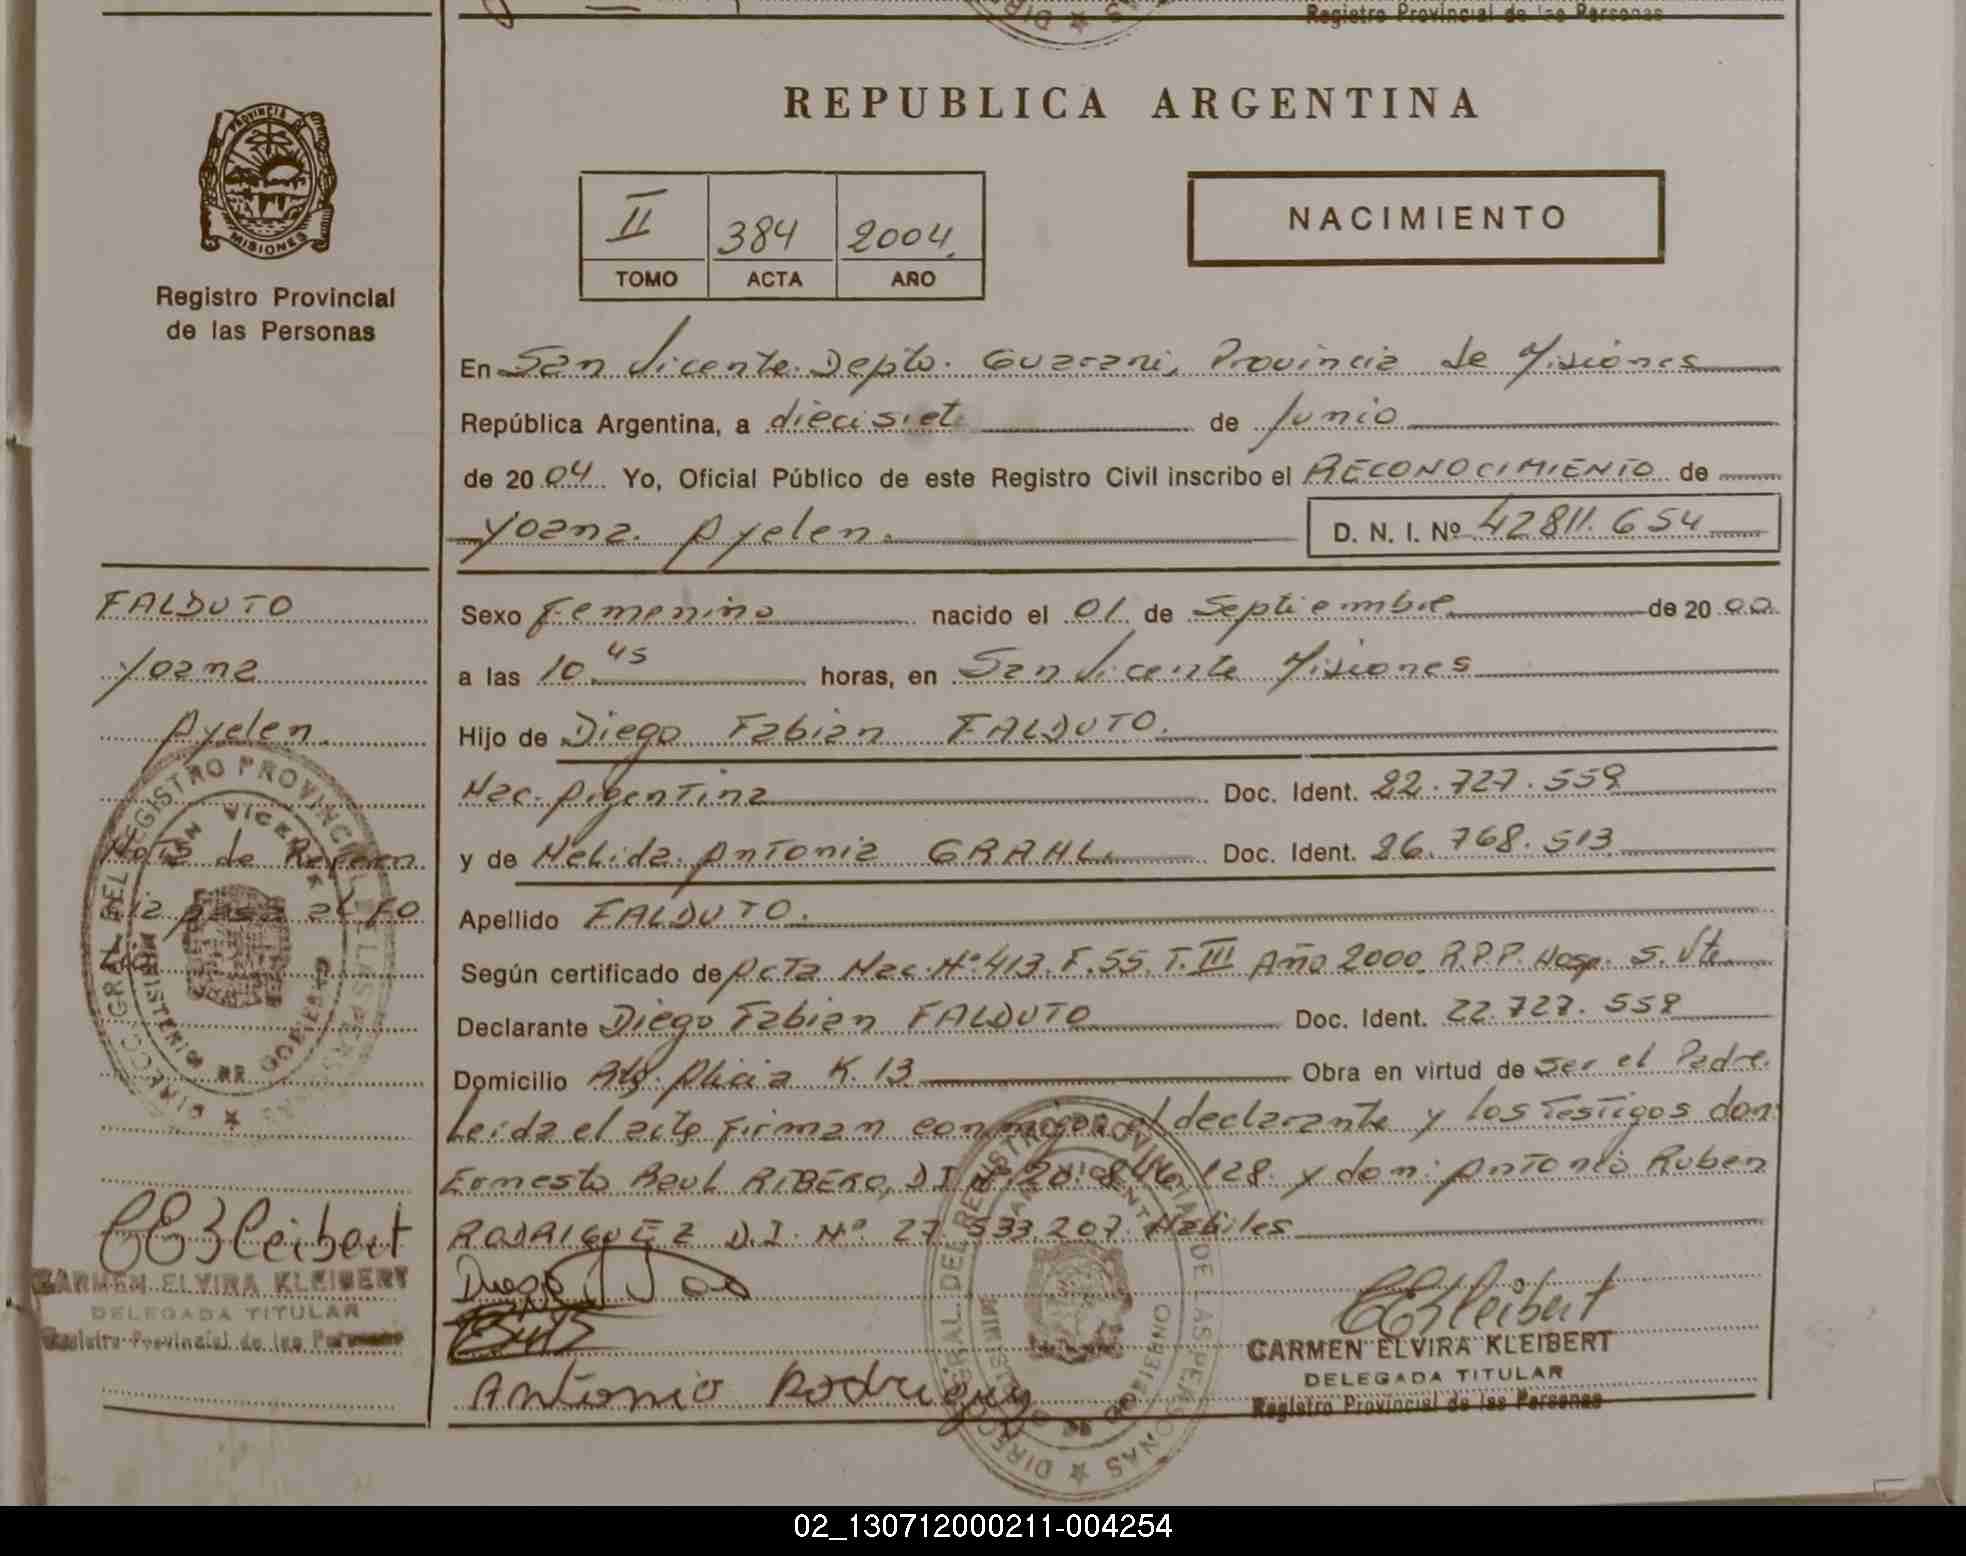 Registro Provincial de las Personas
REPUBLICA ARGENTINA
PROVINCIA DE
MISIONES
Registro Provincial
de las Personas
II 384 2004.
TOMO ACTA AÑO
NACIMIENTO
En San Vicente. Depto. Guarani, Provincia de Misiones
República Argentina, a diecisiete de Junio
de 2004 Yo, Oficial Público de este Registro Civil inscribo el RECONOCIMIENTO de
Yoana Ayelen.
D. N. I. Nº 42811.654
FALDUTO
Yoana
Ayelen.
Nota de Referen
cia pasa al Fo
Sexo Femenino nacido el 01 de Septiembre de 2000
a las 10 45 horas, en San Vicente Misiones
Hijo de Diego Fabian FALDUTO.
Nac. Argentina Doc. Ident. 22.727.559
y de Nelida Antonia GRAHL. Doc. Ident. 26.768.513
Apellido FALDUTO.
Según certificado de Acta Nac. Nº 413. F. 55. T. III Año 2000. R.P.P. Hosp. S. Vte
Declarante Diego Fabian FALDUTO Doc. Ident. 22.727.559
Domicilio Alicia K. 13 Obra en virtud de ser el Padre.
Leida el acta firman conmigo el declarante y los testigos don:
Ernesto Raul RIBERO, D.I. Nº 20.846.128. y don: Antonio Ruben
RODRIGUEZ D.I. Nº 27.533.207. Habiles
Diego
Antonio Rodriguez
CEKleibert
CARMEN ELVIRA KLEIBERT
DELEGADA TITULAR
Registro Provincial de las Personas
CEKleibert
CARMEN ELVIRA KLEIBERT
DELEGADA TITULAR
Registro Provincial de las Personas
DIRECC. GRAL. DEL REGISTRO PROVINCIAL DE LAS PERSONAS
SAN VICENTE
MINISTERIO DE GOBIERNO
DIRECC. GRAL. DEL REGISTRO PROVINCIAL DE LAS PERSONAS
SAN VICENTE
MINISTERIO DE GOBIERNO
02_130712000211-004254